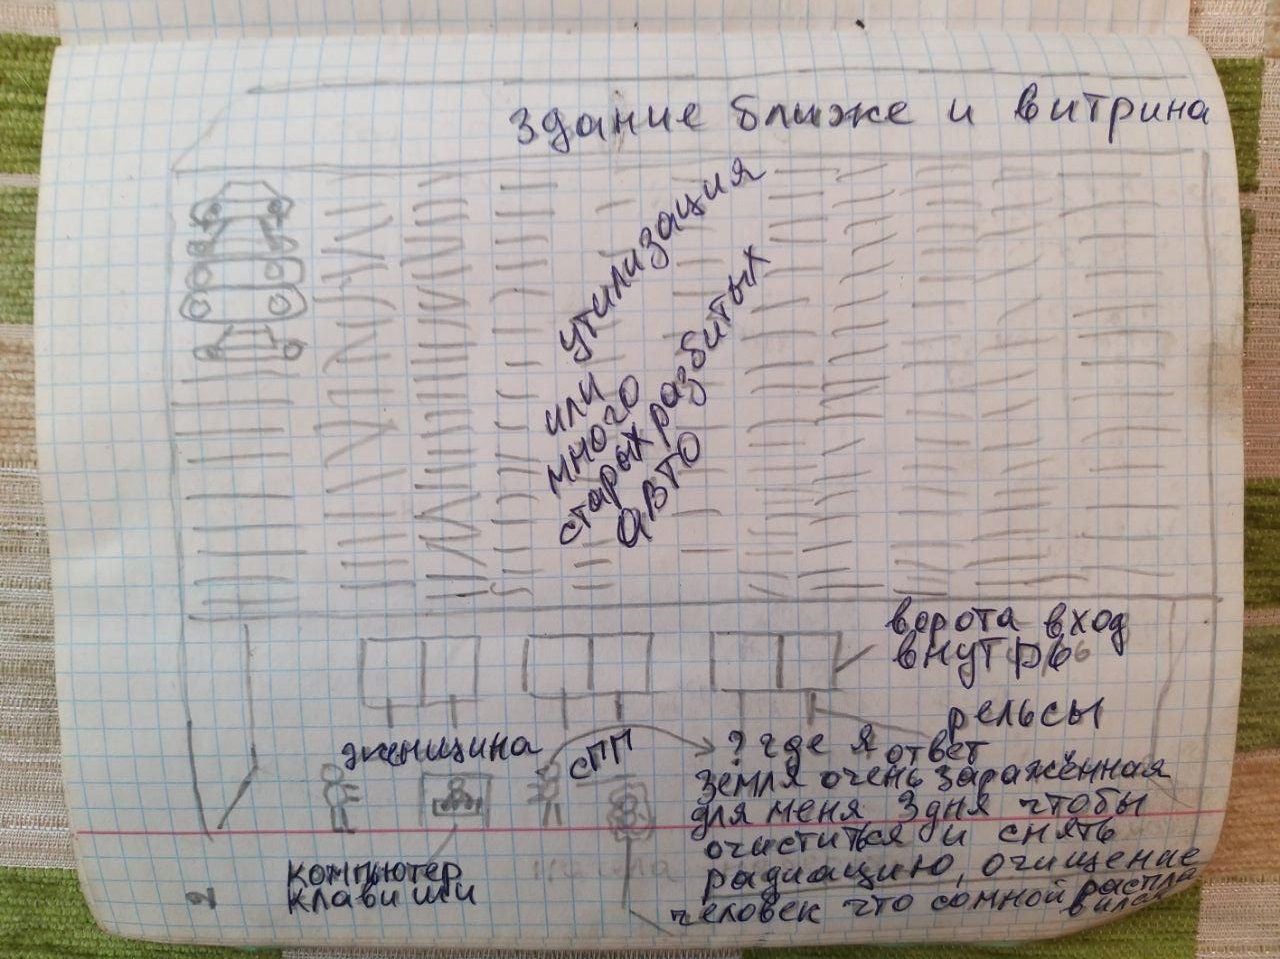 здание ближе и витрина
утилизация
или
много
старых разбитых
авто
ворота вход
внутрь
рельсы
женщина
СПП
? где я ответ
земля очень заражённая
для меня 3 дня чтобы
очиститься и снять
радиацию, очищение
человек что сомной распла
вился
компьютер
клавиши
2